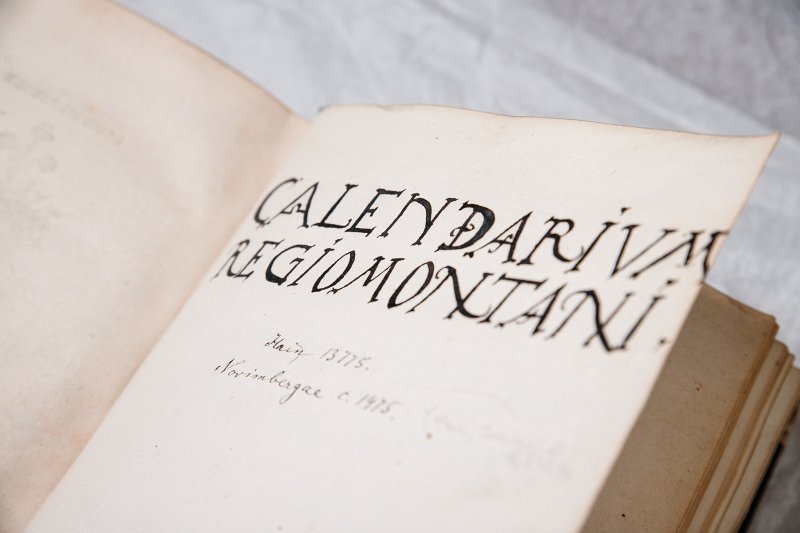 CALENDARIVM
REGIOMONTANI.
Hain 13775.
Norimbergae c. 1475.